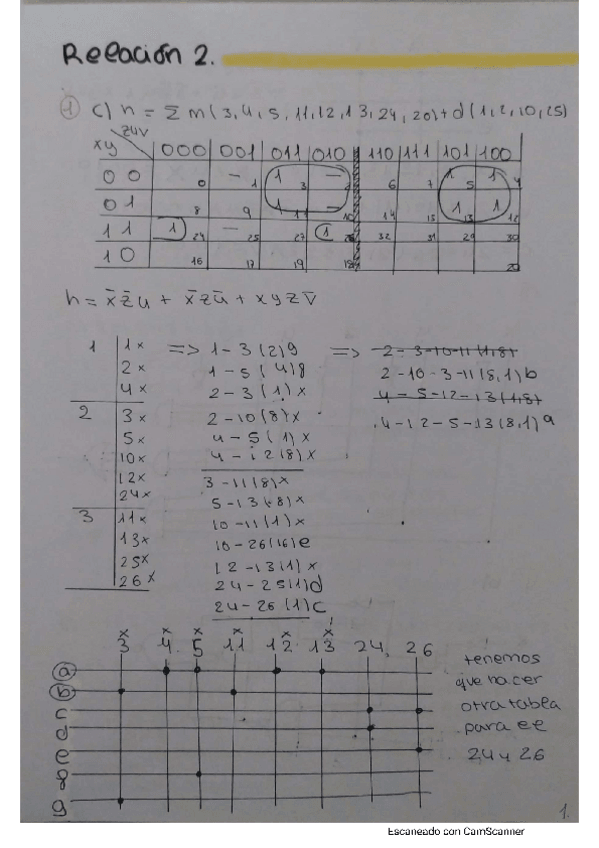 Relación 2.
① c) h = Σ m(3,4,5,11,12,13,24,20)+d(1,2,10,25)
zuv
xy 000 001 011 010 110 111 101 100
00 0 - 1 1 3 - 2 6 7 1 5 1 4
01 8 9 11 10 14 15 1 13 1 12
11 1 24 - 25 27 1 26 32 31 29 30
10 16 17 19 18 20
h = x̄z̄u + x̄zū + xyz̄v̄
1 1x => 1-3(2)g => 2-3-10-11(1,8)
2x 1-5(4)f 2-10-3-11(8,1)b
4x 2-3(1)x 4-5-12-13(1,8)
2 3x 2-10(8)x 4-12-5-13(8,1)a
5x 4-5(1)x
10x 4-12(8)x
12x 3-11(8)x
24x 5-13(8)x
3 11x 10-11(1)x
13x 10-26(16)e
25x 12-13(1)x
26x 24-25(1)d
24-26(1)c
x x x x x x
3 4 5 11 12 13 24 26
a
b
c
d
e
f
g
tenemos
que hacer
otra tabla
para el
24 y 26
1.
Escaneado con CamScanner